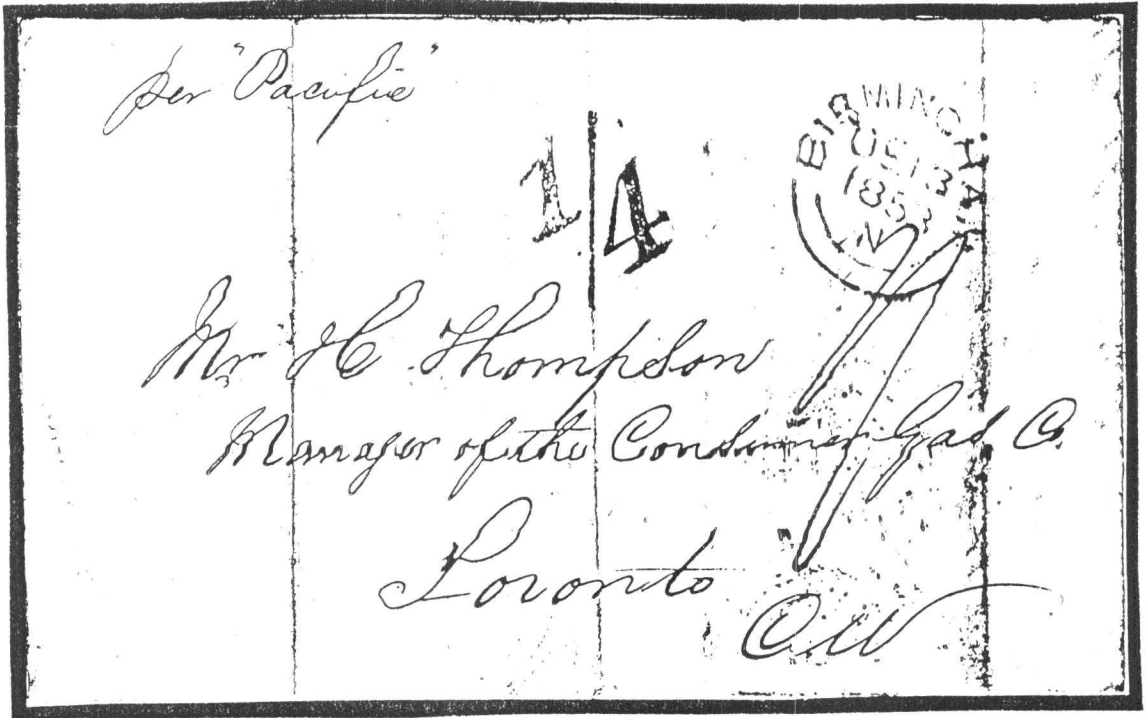 per "Pacific"
1/4
BIRMINGHAM
OC 13
1853
N
Mr H C Thompson
Manager of the Consumer Gas Co.
Toronto
C.W